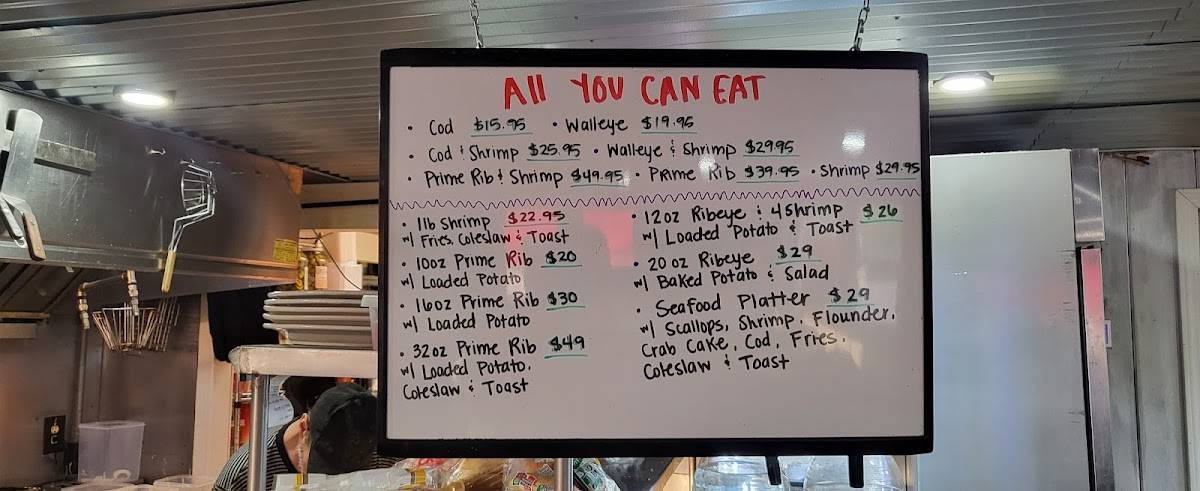 All YOU CAN EAT
• Cod $15.95 • Walleye $19.95
• Cod & Shrimp $25.95 • Walleye & Shrimp $29.95
• Prime Rib & Shrimp $49.95 • Prime Rib $39.95 • Shrimp $29.95
• 1lb Shrimp $22.95
w/ Fries, Coleslaw & Toast
• 10oz Prime Rib $20
w/ Loaded Potato
• 16oz Prime Rib $30
w/ Loaded Potato
• 32oz Prime Rib $49
w/ Loaded Potato,
Coleslaw & Toast
• 12oz Ribeye & 4 Shrimp $26
w/ Loaded Potato & Toast
• 20 oz Ribeye $29
w/ Baked Potato & Salad
• Seafood Platter $29
w/ Scallops, Shrimp, Flounder,
Crab Cake, Cod, Fries,
Coleslaw & Toast